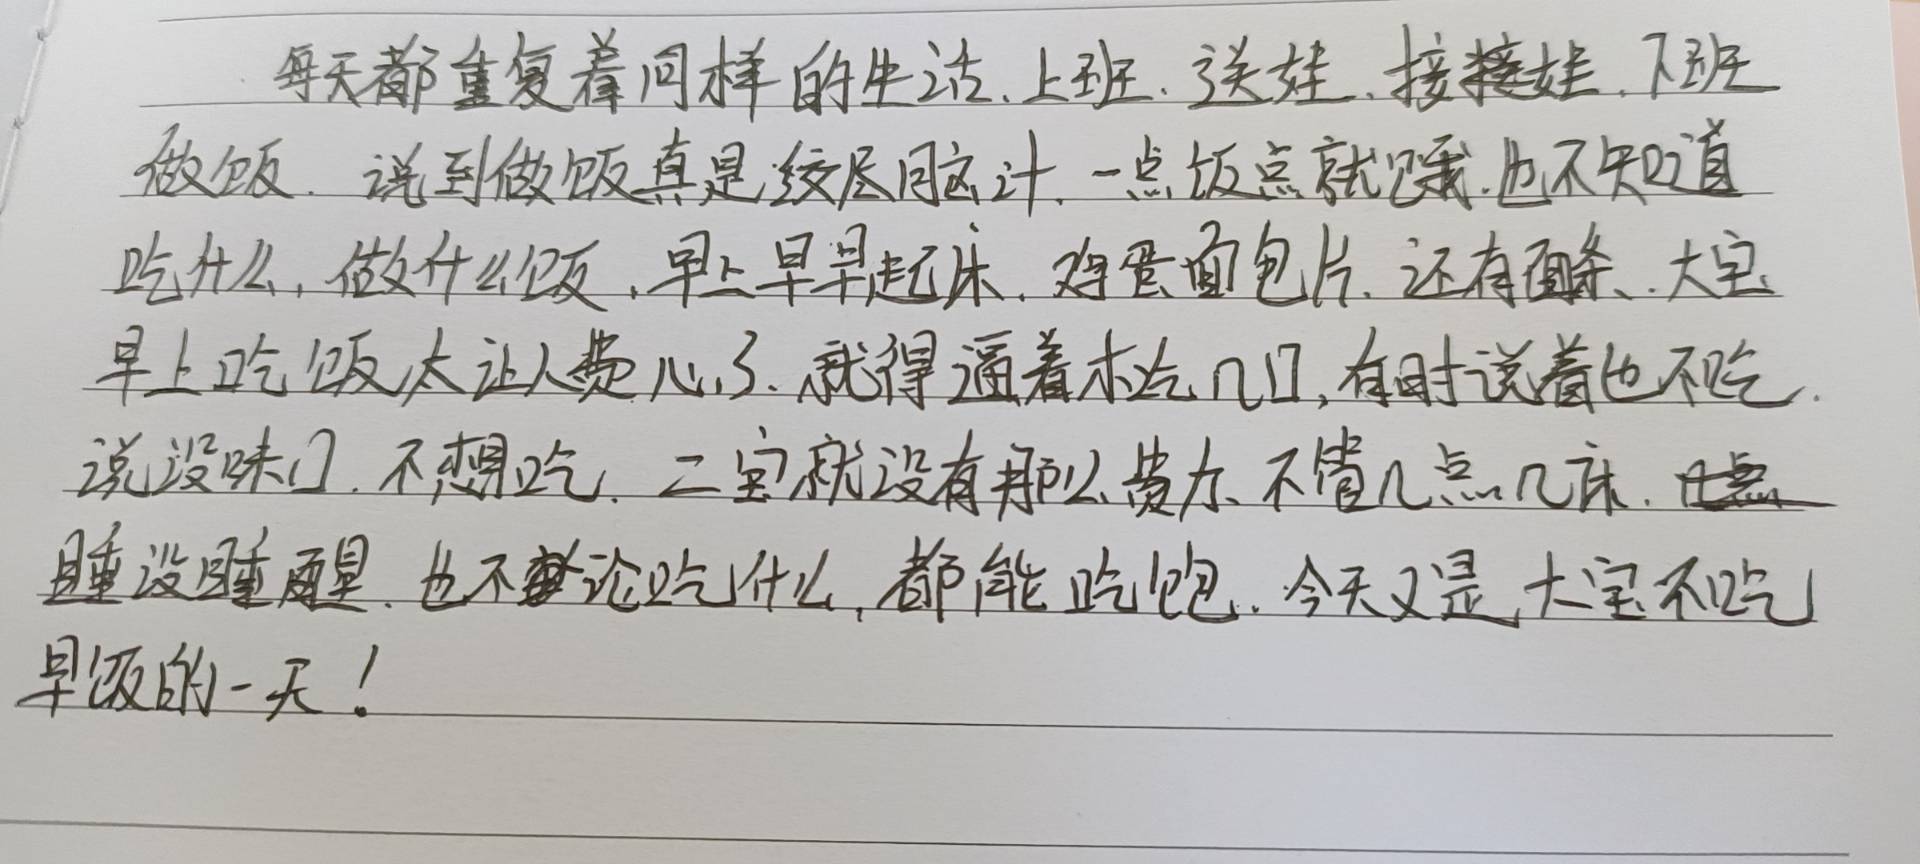 每天都重复着同样的生活、上班、送娃、接娃、下班
做饭、说到做饭真是绞尽脑汁、一点饭点就饿、也不知道
吃什么,做什么饭,早上早早起床、鸡蛋面包片、还有面条、大宝
早上吃饭太让人费心了、就得逼着才吃几口,有时说着也不吃.
说没味口、不想吃、二宝就没有那么费力、不管几点几床、
睡没睡醒、也不论吃什么,都能吃饱、今天又是大宝不吃
早饭的一天!